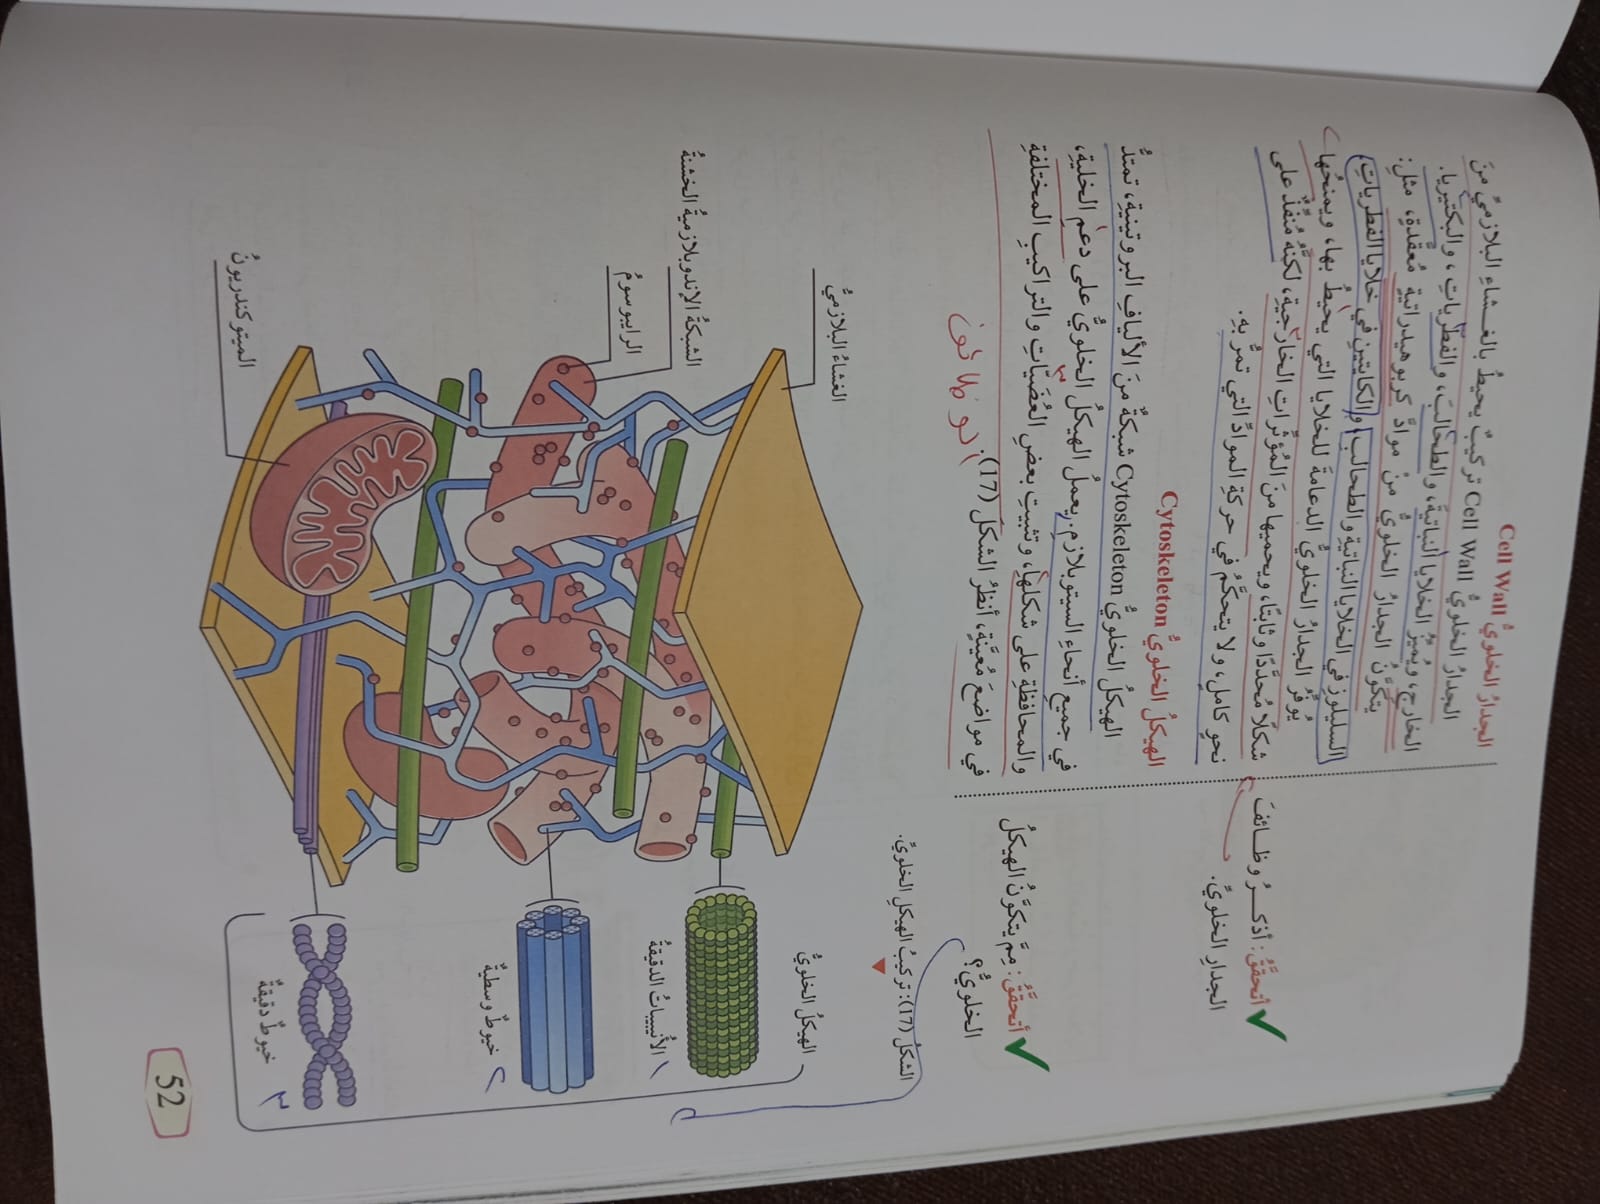 الجدارُ الخلويُّ Cell Wall
الجدارُ الخلويُّ Cell Wall تركيبٌ يحيطُ بالغــشاءِ البلازميِّ منَ
الخارجِ، ويُميّزُ الخلايا النباتيةَ، والطحالبَ، والفطرياتِ، والبكتيريا.
يتكوَّنُ الجدارُ الخلويُّ مِنْ موادَّ كربوهيدراتيةٍ مُعقَّدةٍ، مثل:
السليلوزِ في الخلايا النباتيةِ والطحالبِ، والكايتينِ في خلايا الفطرياتِ.
يُوفِّرُ الجدارُ الخلويُّ الدعامةَ للخلايا التي يحيطُ بها، ويمنحُها
شكلًا مُحدَّدًا وثابتًا، ويحميها منَ المُؤثِّراتِ الخارجيةِ، لكنَّهُ مُنفِذٌ على
نحوٍ كاملٍ، ولا يتحكَّمُ في حركةِ الموادِّ التي تمرُّ بهِ.
✓ أتحقَّقُ: أذكــرُ وظــائفَ
الجدارِ الخلويِّ.
الهيكلُ الخلويُّ Cytoskeleton
الهيكلُ الخلويُّ Cytoskeleton شبكةٌ منَ الأليافِ البروتينيةِ، تمتدُّ
في جميعِ أنحاءِ السيتوبلازمِ. يعملُ الهيكلُ الخلويُّ على دعمِ الخليةِ،
والمحافظةِ على شكلِها، وتثبيتِ بعضِ العُضَيّاتِ والتراكيبِ المختلفةِ
في مواضعَ مُعيَّنةٍ، أنظرُ الشكلَ (17).
✓ أتحقَّقُ: مِمَّ يتكوَّنُ الهيكلُ
الخلويُّ؟
الشكلُ (17): تركيبُ الهيكلِ الخلويِّ.
الغشاءُ البلازميُّ
الهيكلُ الخلويُّ
الشبكةُ الإندوبلازميةُ الخشنةُ
١ الأُنيبيباتُ الدقيقةُ
الرايبوسومُ
٢ خيوطٌ وسطيةٌ
الميتوكندريونُ
٣ خيوطٌ دقيقةٌ
52